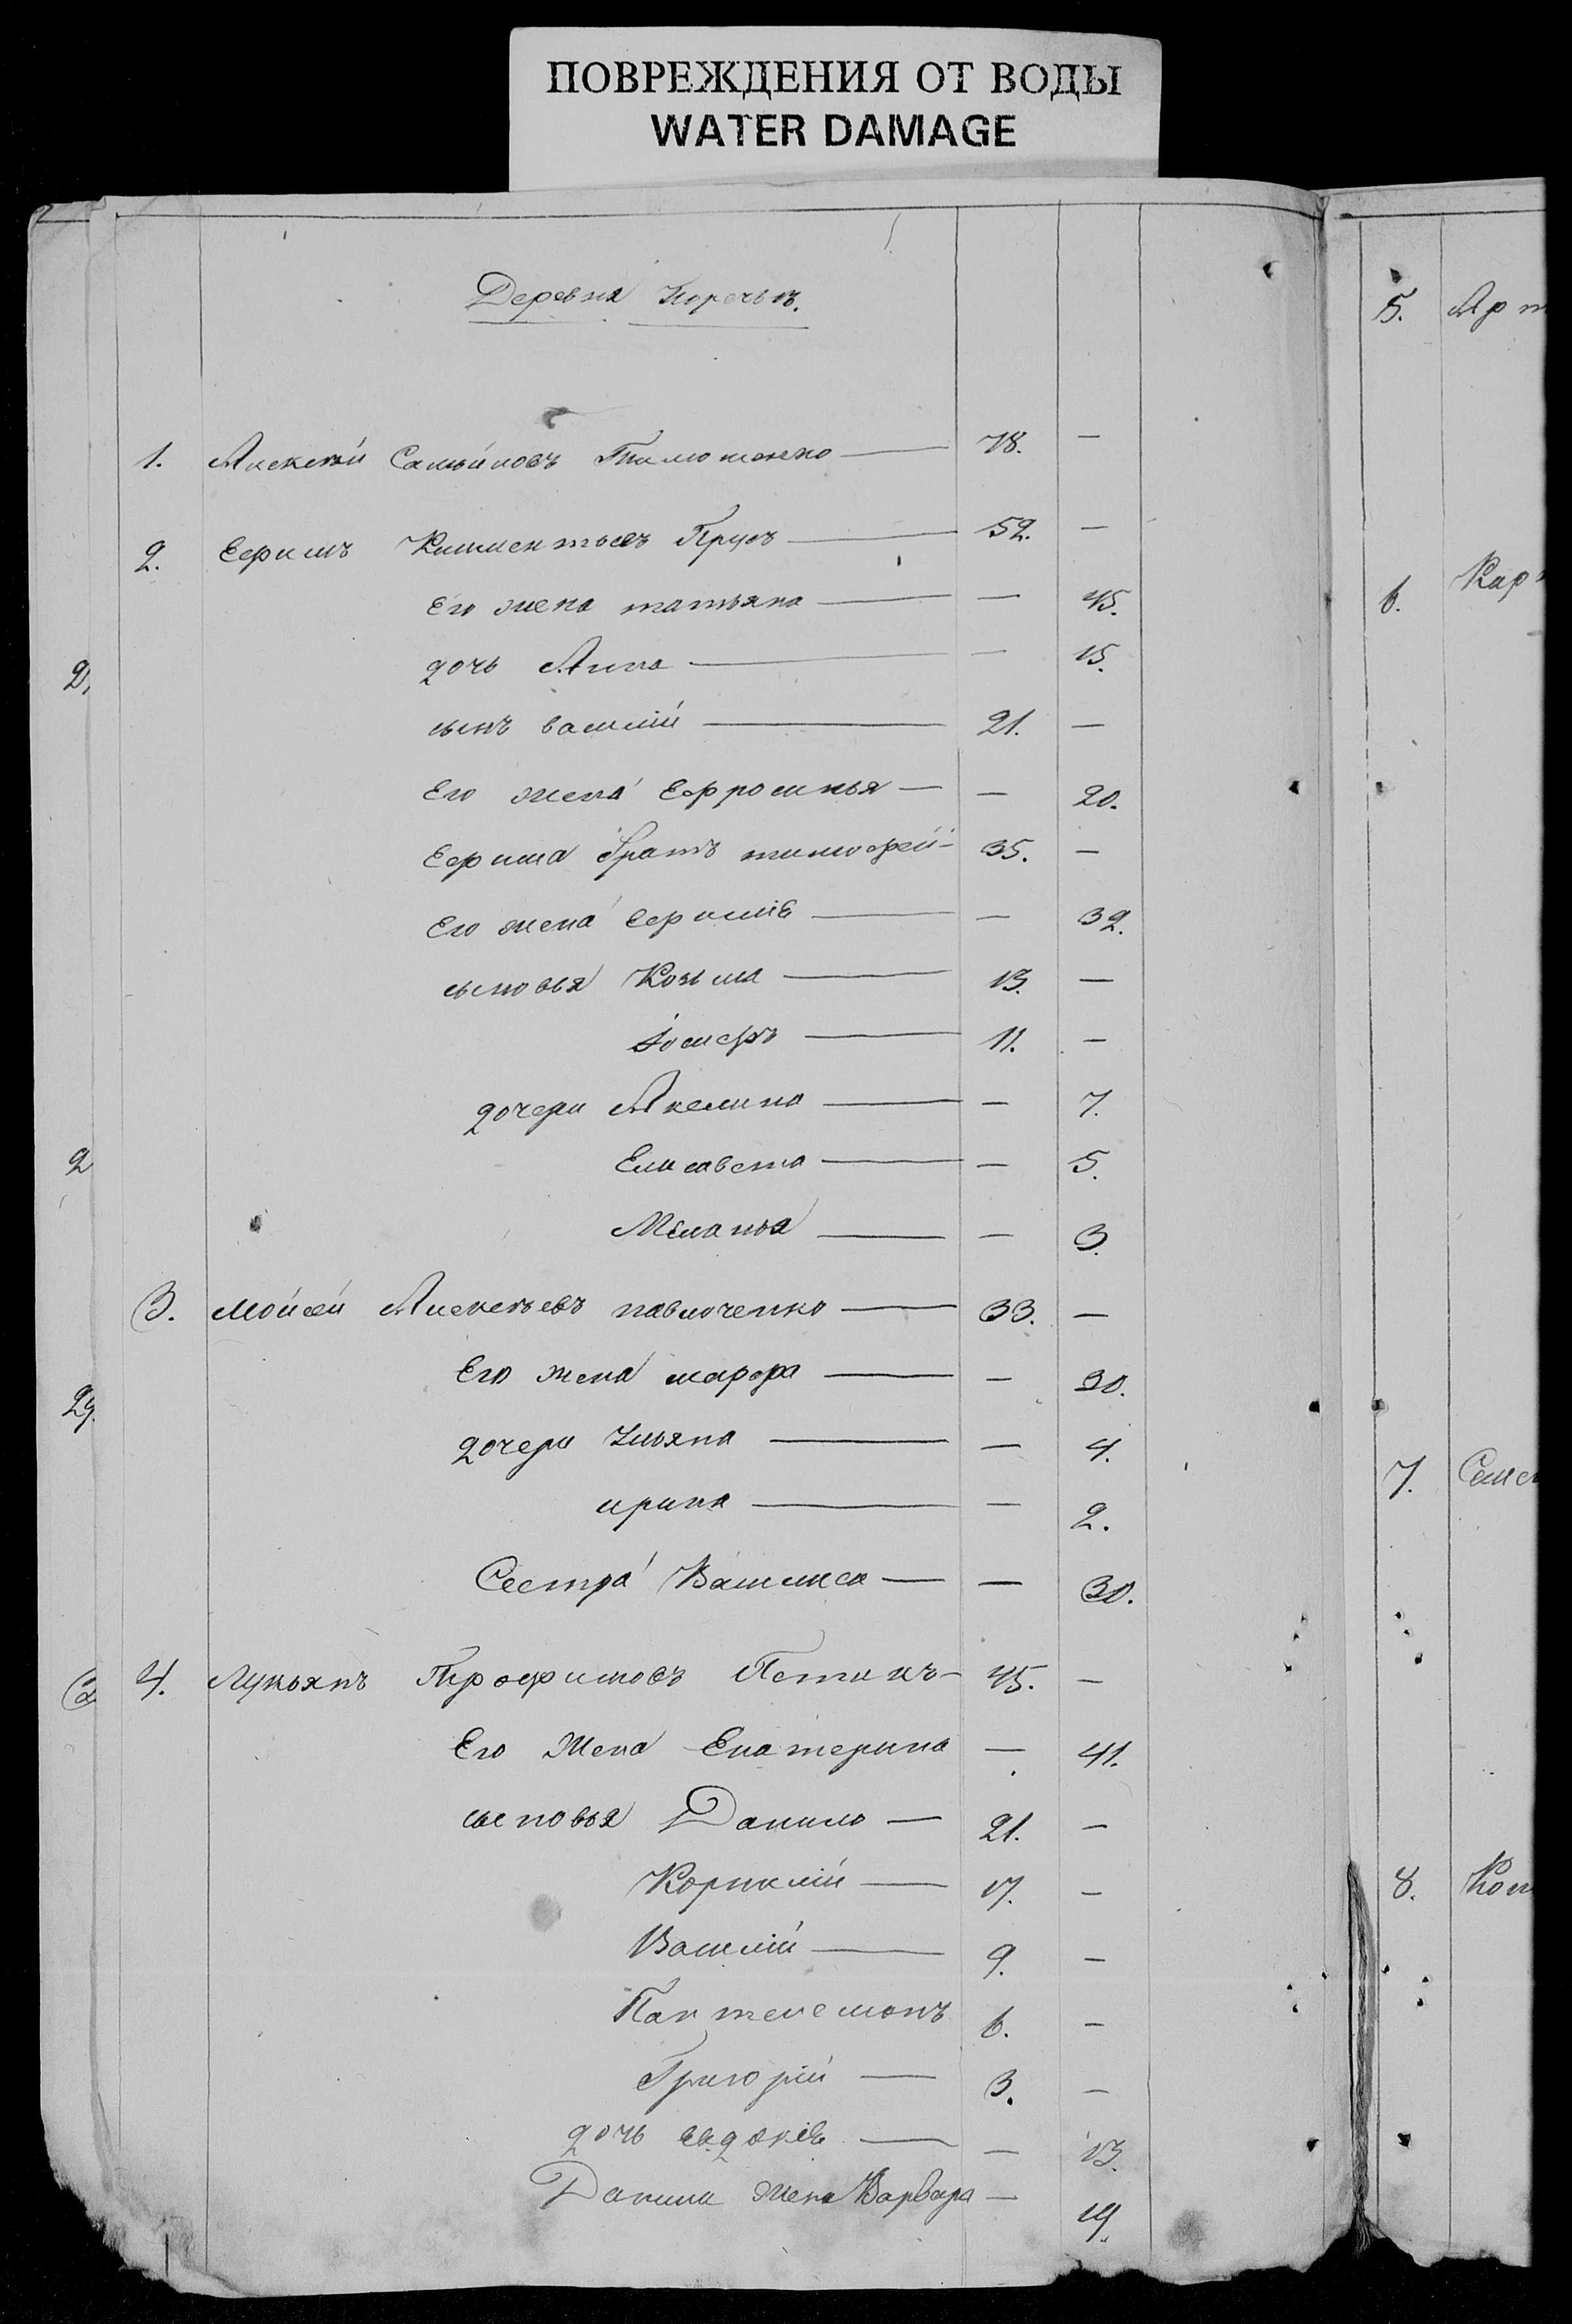 ПОВРЕЖДЕНИЯ ОТ ВОДЫ
WATER DAMAGE
Деревня
1. Алексѣй Самойловъ Тимошенко — 78. —
2. Ефимъ Климентьевъ Прусъ — 52. —
Его жена татьяна — — 45.
дочь Анна — — 15.
сынъ василій — 21. —
Его жена Ефросинья — — 20.
Ефима братъ тимофей — 35. —
Его жена Ефимія — — 32.
сыновья Козьма — 13. —
Іосифъ — 11. —
дочери Акелина — — 7.
Елисавета — — 5.
Меланья — — 3.
3. Мойсей Алексѣевъ павлюченко — 33. —
Его жена марфа — — 30.
дочери Ульяна — — 4.
ирина — — 2.
Сестра Василиса — — 30.
4. Лукьянъ Трофимовъ Петикъ — 45. —
Его Жена Екатерина — 41.
сыновья Данило — 21. —
Корнилій — 17. —
Василій — 9. —
Пантелемонъ 6. —
Григорій — 3. —
дочь евдокія — — 13.
Данилы жена Варвара — 19.
5. Арт
6. Кар
7. Семе
8.